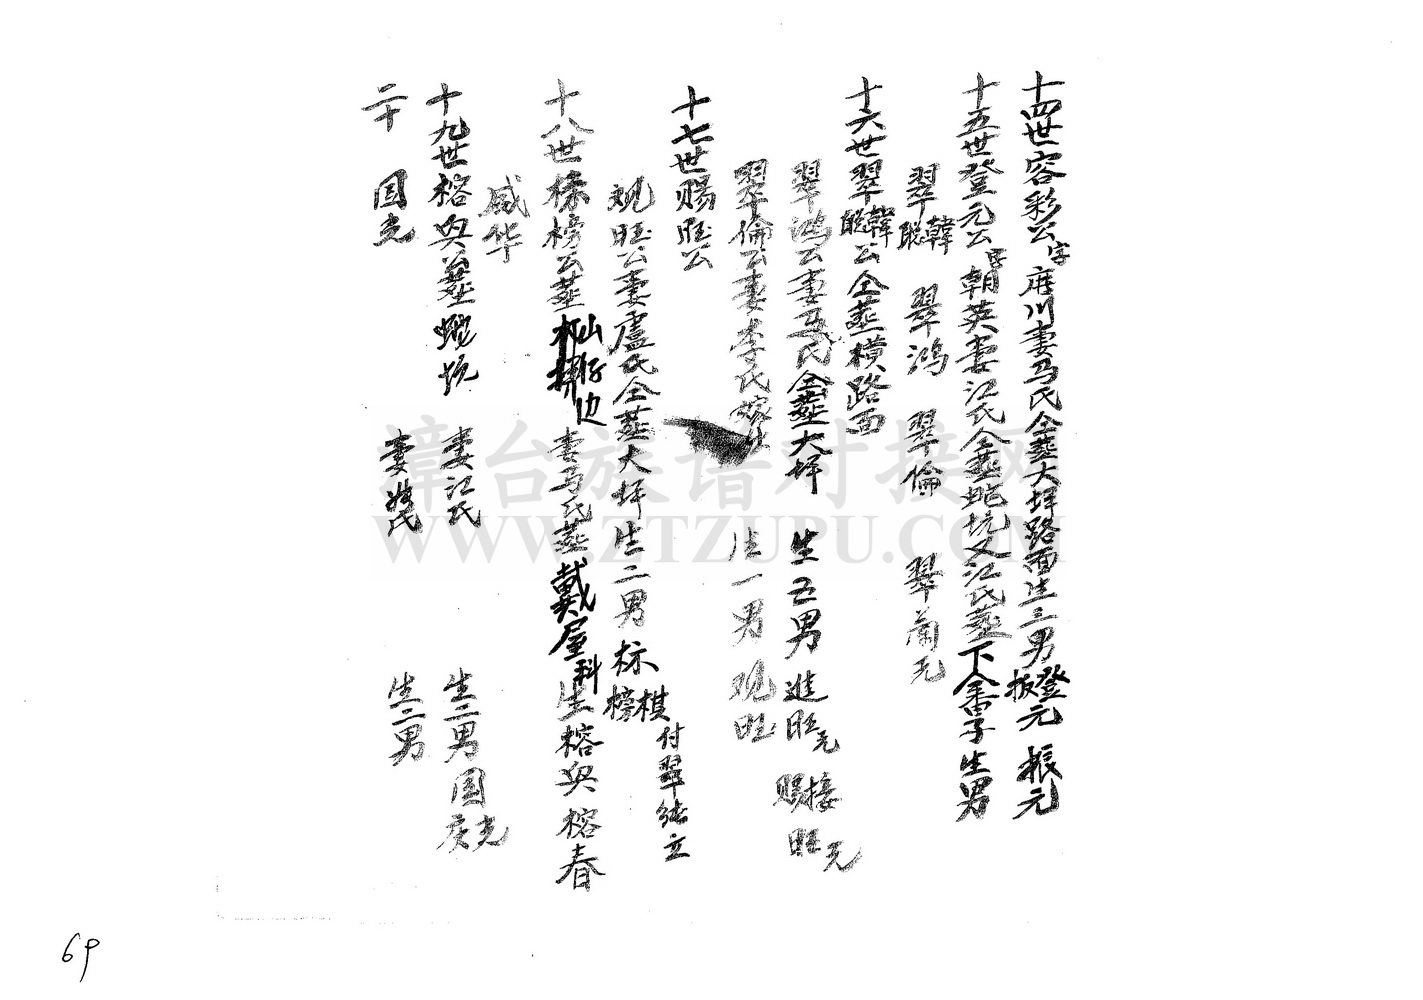 十四世容彩公字店川妻马氏仝葬大坪路面生三男登元 振元 振元
十五世登元公字朝英妻江氏仝葬蛇坑又江氏葬下金田子生男
翠韓 翠聪 翠鸿 翠倫 翠蘭无
十六世翠韓聪公仝葬横路面
翠鸿公妻马氏仝葬大坪 生五男進旺无 接旺 赐旺无
翠倫公妻李氏嫁出 生一男观旺
十七世赐旺公
观旺公妻盧氏仝葬大坪生二男标榜 棋付翠结立
十八世标榜公葬山仔边 妻马氏葬戴屋科生榕興榕春
威华
十九世榕興葬蛇坑 妻江氏 生二男国光 庆
二十 国光 妻姚氏 生二男
漳台族谱对接网
WWW.ZTZUPU.COM
69